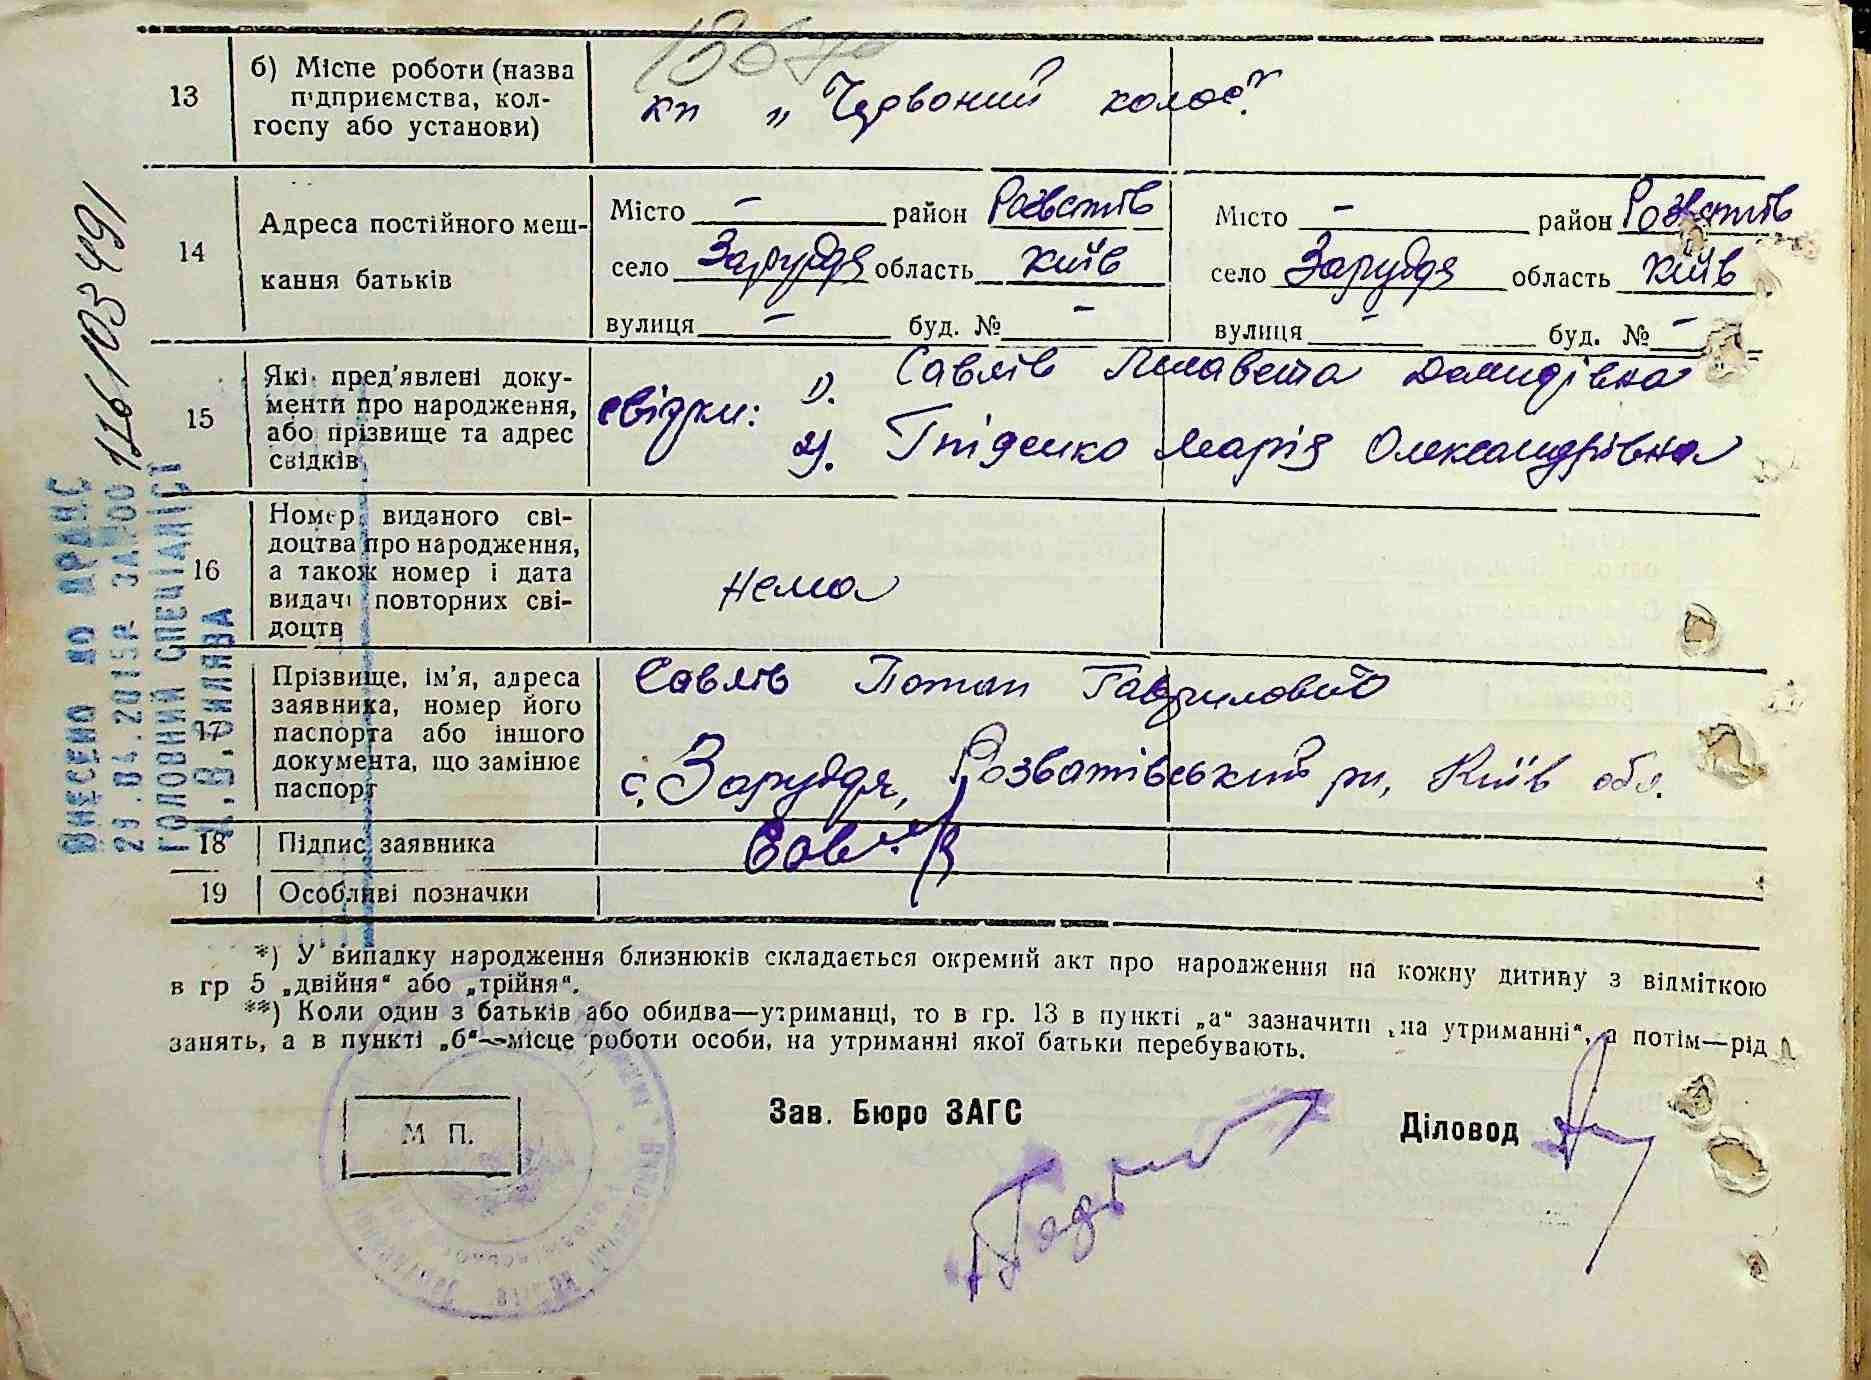 13
б) Місце роботи (назва
підприємства, кол-
госпу або установи)
кп „ Червоний колос".
14
Адреса постійного меш-
кання батьків
Місто — район Розватів
село Заруддя область Київ
вулиця — буд. № —
Місто — район Розватів
село Заруддя область Київ
вулиця — буд. № —
15
Які пред'явлені доку-
менти про народження,
або прізвище та адрес
свідків
свідки: 1). Савлів Лизавета Демидівна
2). Гніденко Марія Олександрівна
16
Номер виданого сві-
доцтва про народження,
а також номер і дата
видачі повторних сві-
доцтв
нема
17
Прізвище, ім'я, адреса
заявника, номер його
паспорта або іншого
документа, що замінює
паспорт
Савлів Потап Гаврилович
с. Заруддя, Розватівський рн, Київ обл.
18
Підпис заявника
19
Особливі позначки
*) У випадку народження близнюків складається окремий акт про народження на кожну дитину з відміткою
в гр 5 „двійня“ або „трійня“.
**) Коли один з батьків або обидва—утриманці, то в гр. 13 в пункті „а“ зазначити „на утриманні“, а потім—рід
занять, а в пункті „б“—місце роботи особи, на утриманні якої батьки перебувають.
М П.
Зав. Бюро ЗАГС
Діловод
ВНЕСЕНО ДО ДРАЦС
29.04.2015Р ЗА №00 116103491
ГОЛОВНИЙ СПЕЦІАЛІСТ